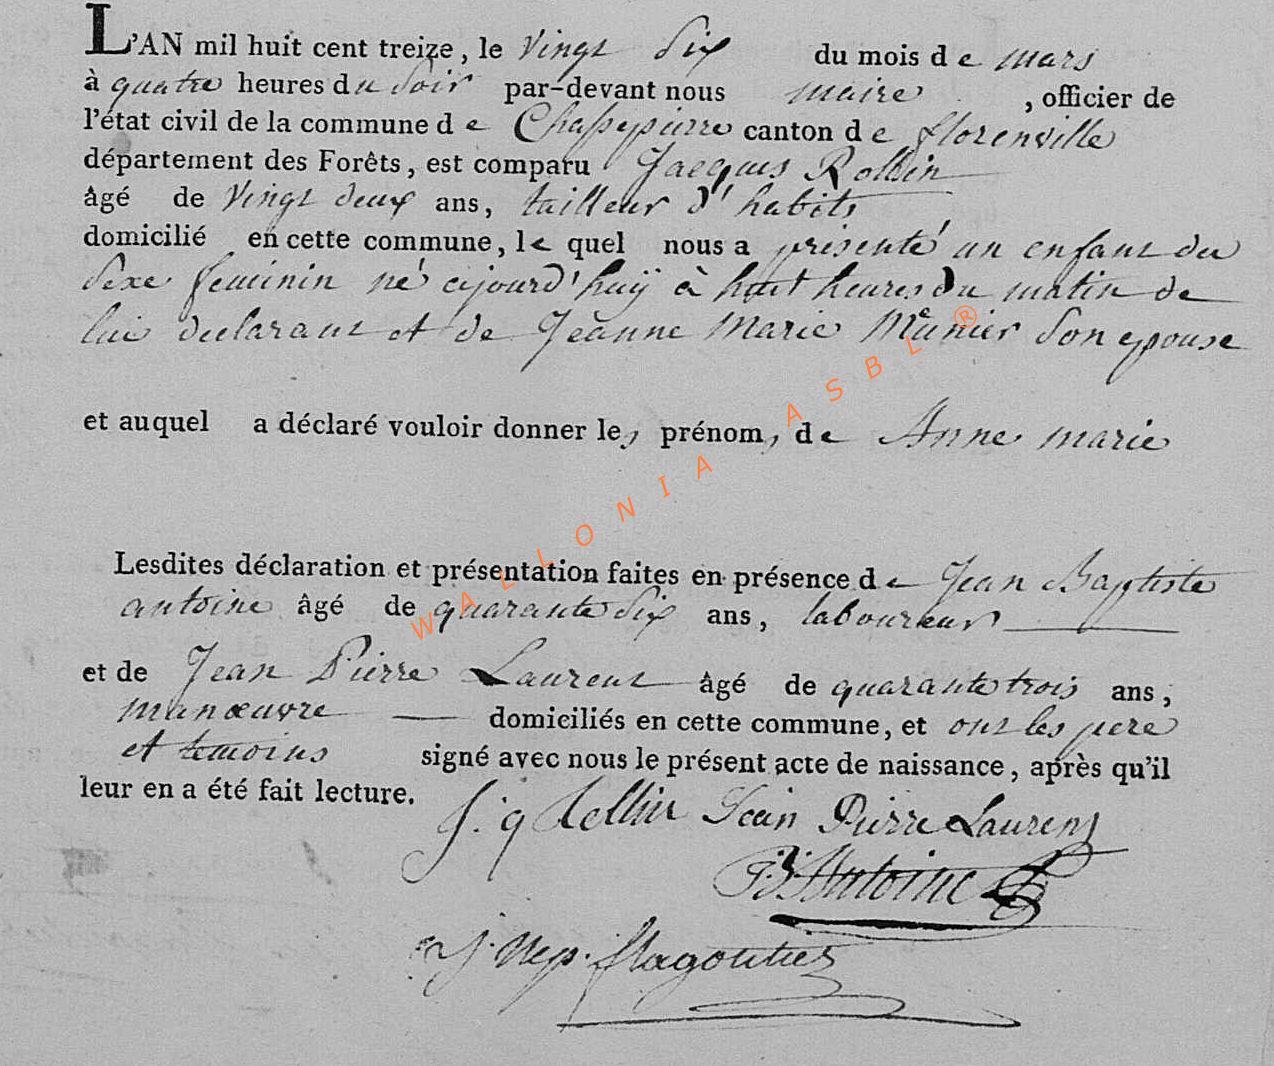 L'AN mil huit cent treize, le vingt Six du mois de mars
à quatre heures du Soir par-devant nous maire, officier de
l'état civil de la commune de Chassepierre canton de florenville
département des Forêts, est comparu Jacques Rollin
âgé de vingt deux ans, tailleur d'habits
domicilié en cette commune, le quel nous a présenté un enfant du
Sexe feminin né cejourd'huÿ à huit heures du matin de
lui declarant et de Jeanne Marie Munier Son epouse
et auquel a déclaré vouloir donner les prénoms de Anne marie
Lesdites déclaration et présentation faites en présence de Jean Baptiste
antoine âgé de quarante Six ans, laboureur
et de Jean Pierre Laurent âgé de quarante trois ans,
manœuvre domiciliés en cette commune, et ont les pere
et temoins signé avec nous le présent acte de naissance, après qu'il
leur en a été fait lecture.
J: q Rollin Jean Pierre Laurent
JB Antoine
J. Nep. flagoutier
WALLONIA ASBL ®